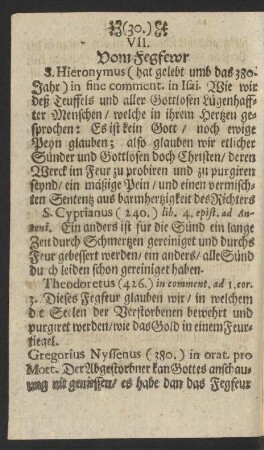 (30.)
VII.
Vom Fegfewr
S. Hieronymus (hat gelebt umb das 380.
Jahr) in fine comment. in Isai. Wie wir
deß Teuffels und aller Gottlosen Lügenhaff-
ter Menschen / welche in ihrem Hertzen ge-
sprochen: Es ist kein Gott / noch ewige
Peyn glauben; also glauben wir etlicher
Sünder und Gottlosen doch Christen / deren
Werck im Feur zu probiren und zu purgiren
seynd / ein mäßige Pein / und einen vermisch-
ten Sententz aus barmhertzigkeit des Richters
S. Cyprianus (240.) lib. 4. epist. ad An-
Ein anders ist für die Sünd ein lange
Zeit durch Schmertzen gereiniget und durchs
Feur gebessert werden / ein anders / alle Sünd
durch leiden schon gereiniget haben.
Theodoretus (426.) in comment. ad 1. cor.
3. Dieses Fegfeur glauben wir / in welchem
die Seelen der Verstorbenen bewehrt und
purgiret werden / wie das Gold in einem Feur-
tiegel.
Gregorius Nyssenus (380.) in orat. pro
Mort. Der Abgestorbner kan Gottes anschau-
ung nit geniessen / es habe dan das Fegfeur